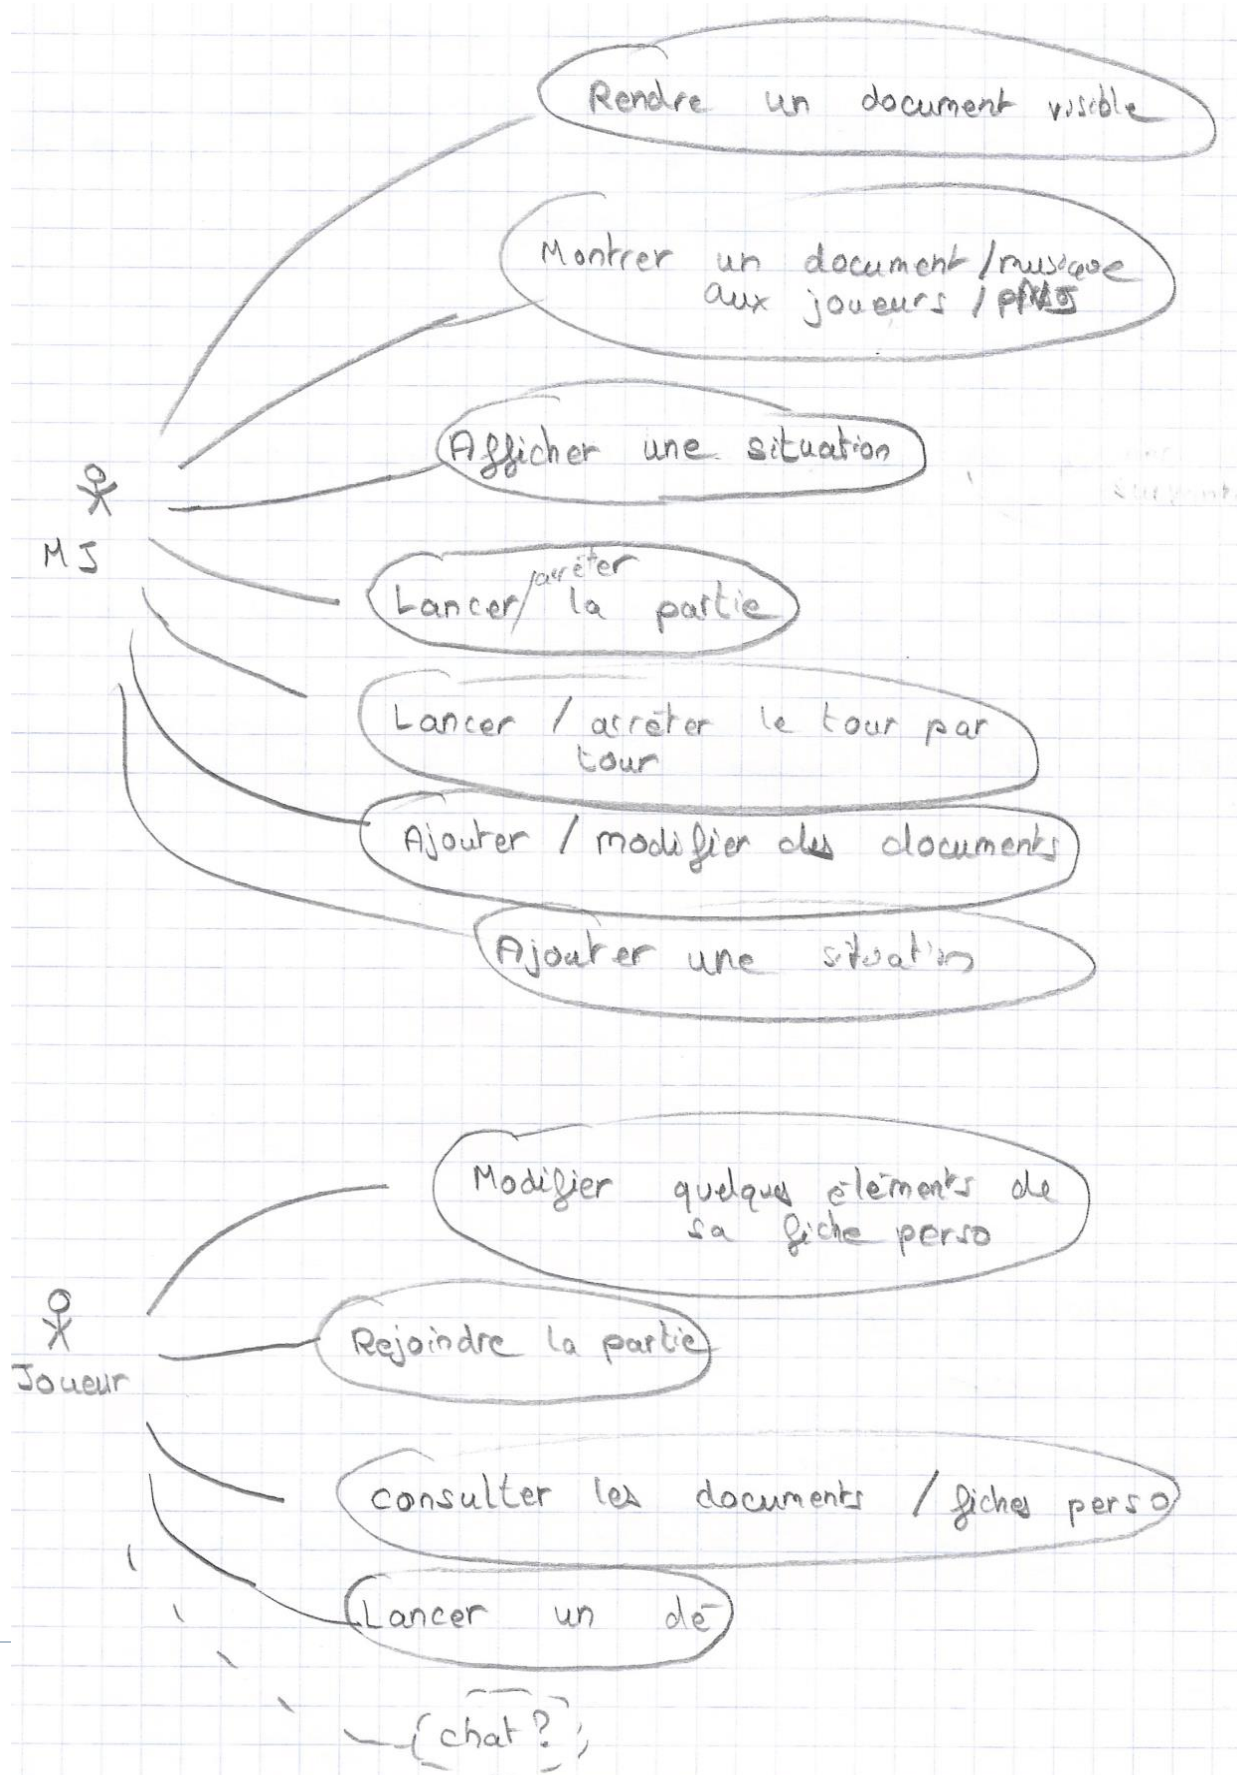 Rendre un document visible
Montrer un document / musique
aux joueurs /
Afficher une situation
MJ
arrêter
Lancer/ la partie
Lancer / arrêter le tour par
tour
Ajouter / modifier des documents
Ajouter une situation
Modifier quelques éléments de
sa fiche perso
Rejoindre la partie
Joueur
consulter les documents / fiches perso
Lancer un dé
chat ?